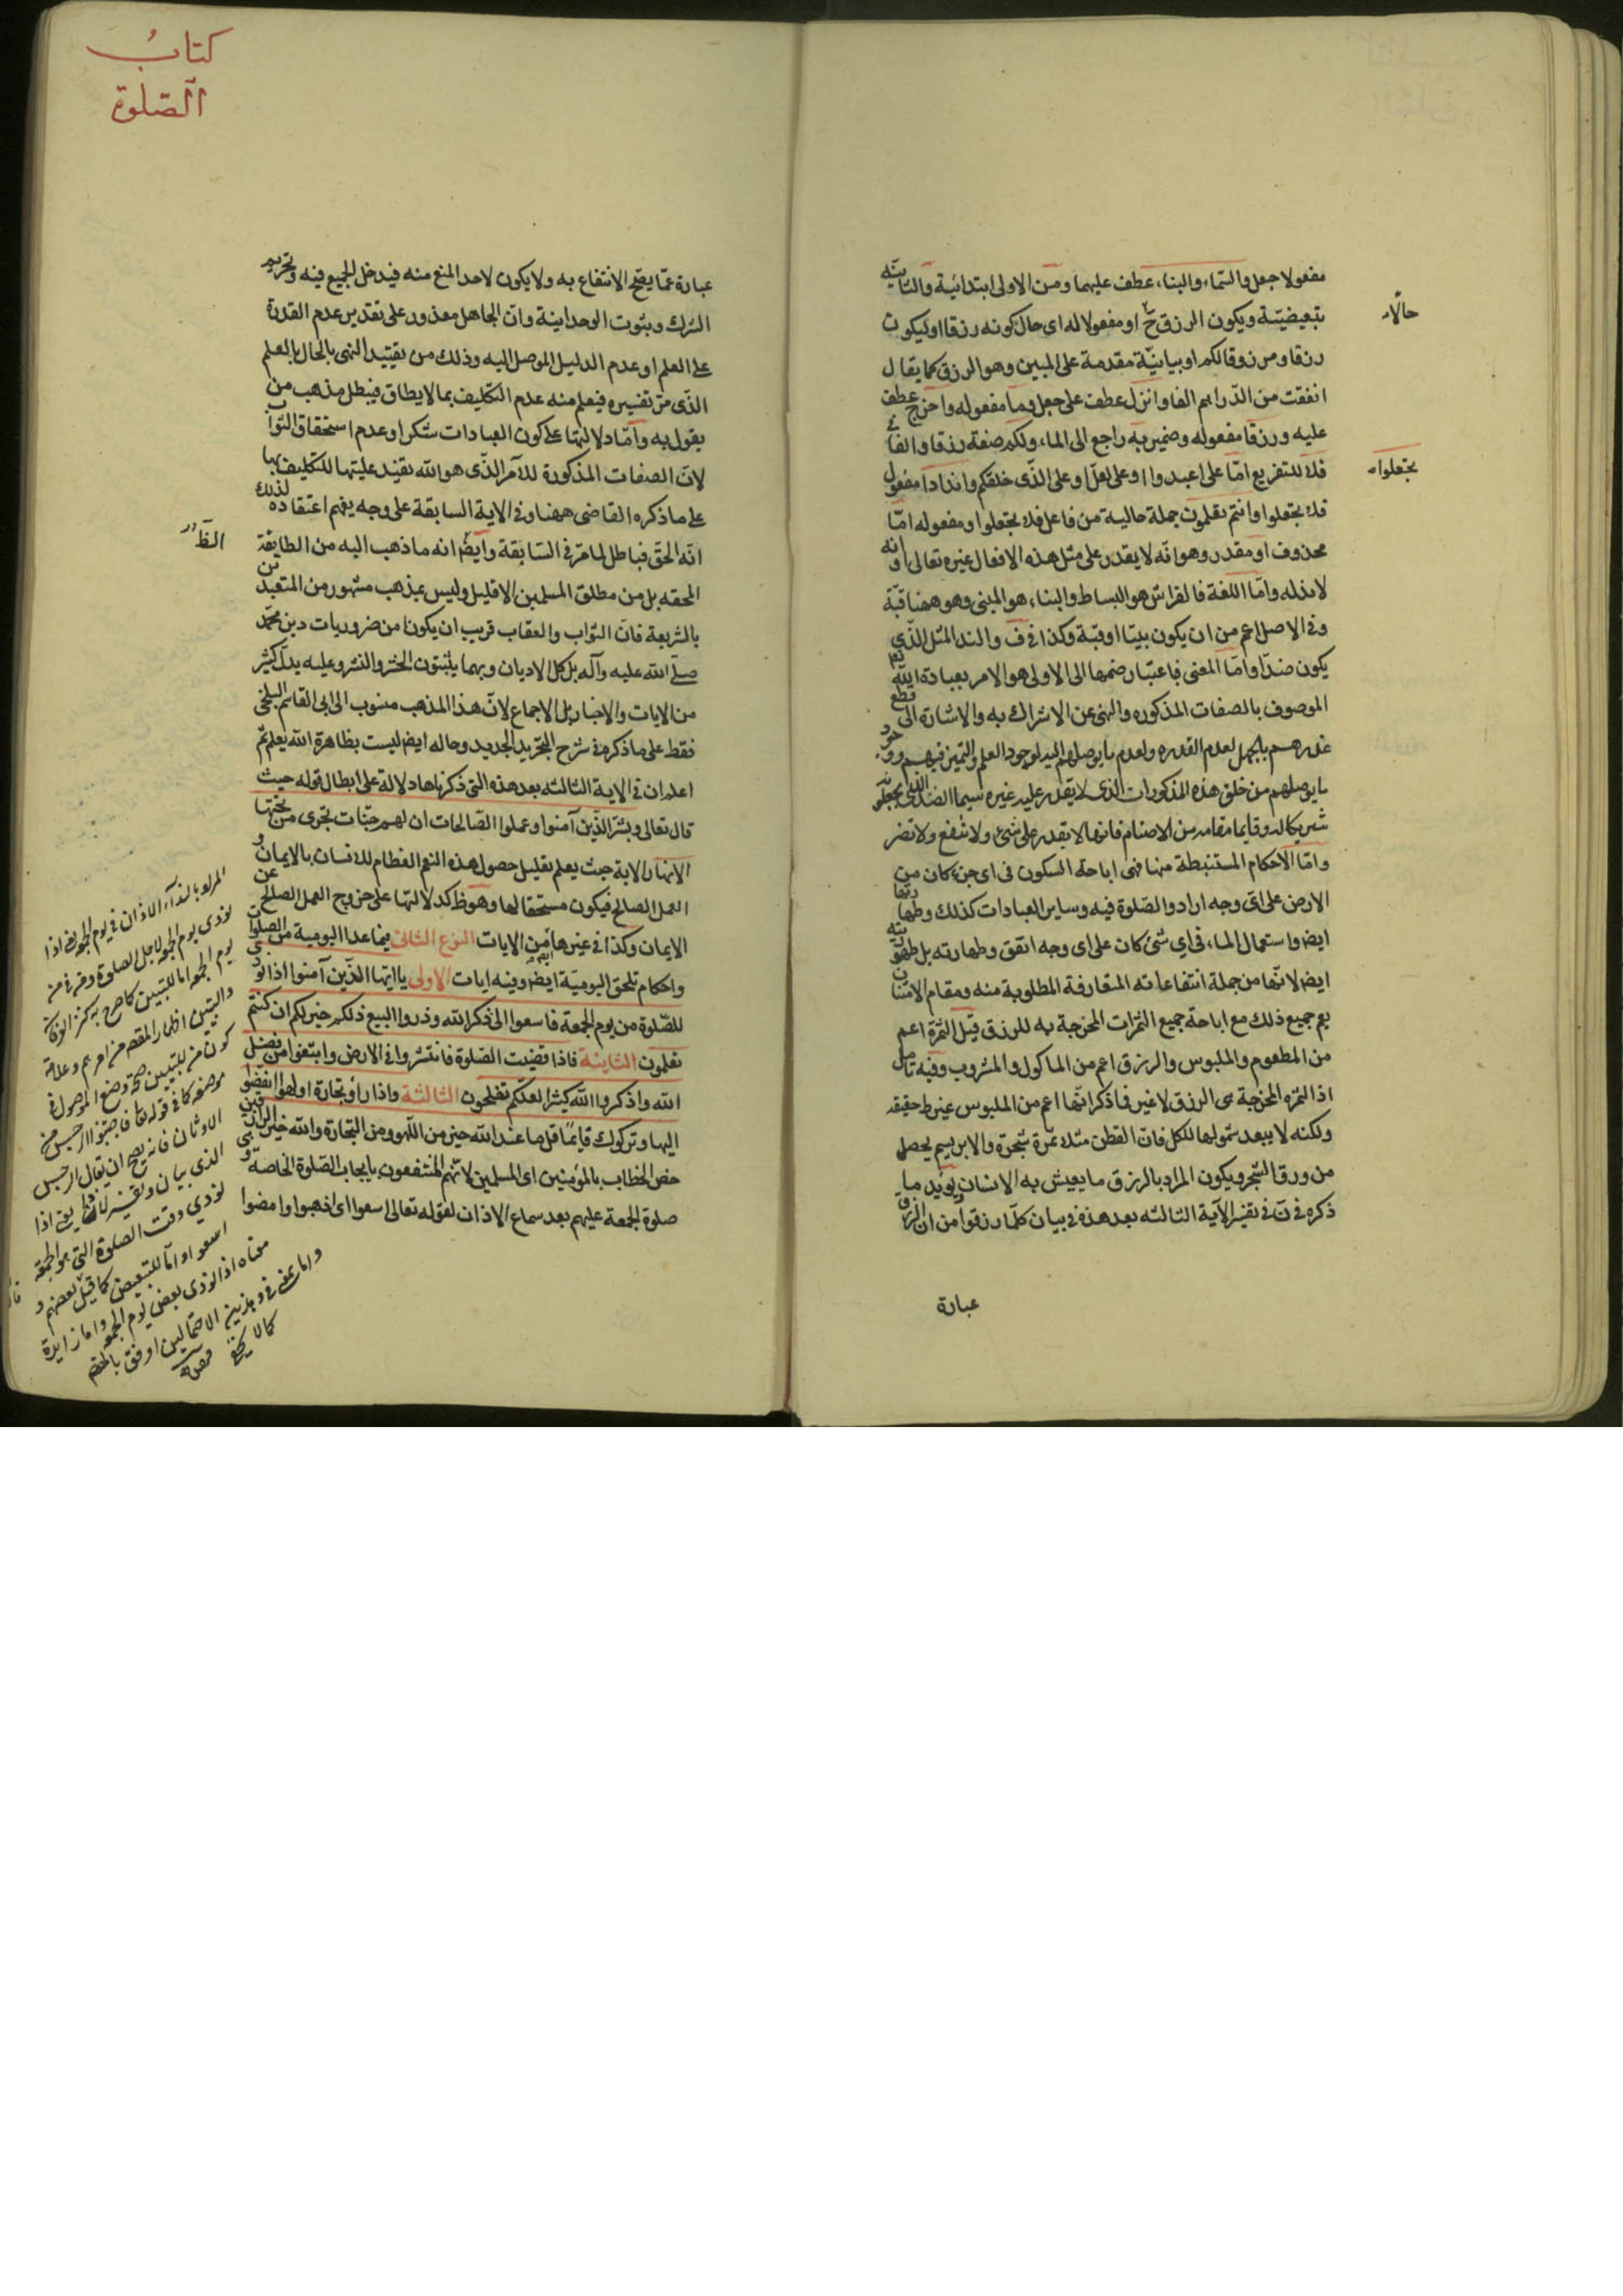 مفعولا جعل والسّماء والبناء عطف عليهما ومن الاولى ابتدائية والثانيّه
تبعيضيّة ويكون الرزق ح او مفعولا له اى حال كونه رزقا او ليكون
حالاً
رزقا ومرزوقا لكم او بيانيّة مقدمة على المبين وهو الرزق كما يقال
انفقت من الدّراهم الفا وانزل عطف على جعل وماء مفعوله واخرج عطف
عليه ورزقا مفعوله وضمير به راجع الى الماء ولكم صفة رزقا والفاء في
فلا للتفريع امّا على اعبدوا او على لعلّ او على الّذى خلقكم واندادا مفعول
تجعلوا
فلا تجعلوا وانتم تعلمون جملة حالية من فاعل فلا تجعلوا ومفعوله امّا
محذوف او مقدر وهو انّه لا يقدر على مثل هذه الافعال غيره تعالى او انه
لا ندله وامّا اللغة فالفراش هو البساط والبناء هو المبنى وهو ههنا قبّة
وفى الاصل اعم من ان يكون بيتا او قبّة وكذا فى ف والند المثل الّذى
يكون ضدّا وامّا المعنى فباعتبار ضمها الى الاولى هو الامر بعبادة الله تعم
الموصوف بالصفات المذكوره والنهى عن الاشراك به والاشارة الى قطع
عذرهم بالجهل لعدم القدره ولعدم ما يوصلهم اليه لوجود العلم والتميز فيهم ووجود
ما يوصلهم من خلق هذه المذكورات الذى لا يقدر عليه غيره سيما الضد الذى يجعلونه
شريكا له وقايما مقامه من الاصنام فانها لا يقدر على شئ ولا تنفع ولا تضر
وامّا الأحكام المستنبطة منها فهى اباحة السكون فى اى جزء كان من
الارض على اىّ وجه ارادوا الصّلوة فيه وساير العبادات كذلك وطهارتها
ايضا واستعمال الماء فى اي شئ كان على اى وجه اتفق وطهارته بل طهوريّته
ايضا لانّها من جملة انتفاعاته المتعارفة المطلوبة منه ومقام الامتنان
يعم جميع ذلك مع اباحة جميع الثمرات المخرجة به للرزق قيل الثمرة اعم
من المطعوم والملبوس والرزق اعم من المأكول والمشروب وفيه تأمل
اذا الثمره المخرجة هى الرزق لا غير فما ذكر انّها اعم من الملبوس غير ظ حقيقه
ولكنه لا يبعد شمولها للكل فان القطن مثلا ثمرة شجرة والابريسم يحصل
من ورق الشجر ويكون المراد بالرزق ما يعيش به الانسان ويؤيد ما
ذكره فى نّ فى تفسير الآية الثالثه بعد هذه فى بيان كلّما رزقوا من ان الرزق
عبارة
كتابُ
الصّلوة
عبارة عمّا يصحّ الانتفاع به ولا يكون لاحد المنع منه فيدخل الجميع فيه وتحريم
الشرك وثبوت الوحدانية وانّ الجاهل معذور على تقدير عدم القدرة
على العلم او عدم الدليل الموصل اليه وذلك من تقييد النهى بالحال بالعلم
الذّى مرّ تفسيره فيعلم منه عدم التكليف بما لا يطاق فيبطل مذهب من
يقول به وأمّا دلالتها على كون العبادات شكرا وعدم استحقاق الثواب
لانّ الصفات المذكورة للآمر الذّى هو الله تفيد عليتها للتكليف بها
على ما ذكره القاضى ههنا وفى الاية السابقة على وجه يفهم اعتقاده لذلك
انّه الحقّ فباطل لما مرّ فى السّابقة وايضا انه ما ذهب اليه من الطايفة
الظّر
المحقه بل من مطلق المسلمين الا قليل وليس بمذهب مشهور من المتعبدين
بالشريعة فانّ الثواب والعقاب قريب ان يكونا من ضروريات دين محمّد
صلّى الله عليه وآله بل كل الاديان وبهما يثبتون الحشر والنشر وعليه يدلّ كثير
من الايات والاخبار بل الاجماع لانّ هذا المذهب منسوب الى ابى القاسم البلخى
فقط على ما ذكره فى شرح التجريد الجديد وحاله ايضا ليست بظاهرة الله يعلم ثم
اعلم ان فى الاية الثالثه بعد هذه التى ذكرناها دلالة على ابطال قوله حيث
قال تعالى وبشّر الّذين آمنوا وعملوا الصّالحات ان لهم جنّات تجرى من تحتها
الانهار الاية حيث يعلم تعليل حصول هذه النعم العظام للانسان بالايمان و
العمل الصالح فيكون مستحقا لها وهو ظ كدلالتها على خروج العمل الصالح عن
الايمان وكذا فى غيرها من الايات النوع الثانى فيما عدا اليومية من الصلوات
واحكام تلحق اليوميّة ايضا وفيه ايات الاولى يا ايها الذّين آمنوا اذا نودى
للصّلوة من يوم الجمعة فاسعوا الى ذكر الله وذروا البيع ذلكم خير لكم ان كنتم
تعلمون الثانية فاذا قضيت الصّلوة فانتشروا فى الارض وابتغوا من فضل
الله واذكروا الله كثيرا لعلّكم تفلحون الثالثة واذا رأو تجارة او لهوا انفضّوا
اليها وتركوك قايمًا قل ما عند الله خير من اللّهو ومن التجارة والله خير الرازقين
خصّ الخطاب بالمؤمنين اى المسلمين لانّهم المنتفعون بايجاب الصّلوة الخاصة و
صلوة الجمعة عليهم بعد سماع الاذان لقوله تعالى اسعوا اى اذهبوا وامضوا
المراد بالنداء الاذان فى يوم الجمعة اذا
نودى يوم الجمعة لاجل الصلوة ومن فى من
يوم الجمعة اما للتبيين كما صرح به كنز العرفان
والتبيين اظهار المقصود من امر مبهم وعلامة
كون من للتبيين صحة وضع الموصول فى
موضعه كما فى قوله تعا فاجتنبوا الرجس من
الاوثان فانه يصح ان يقال الرجس
الذى
نودي وقت الصلوة التى هو الجمعة
اسعوا واما للتبعيض كما قيل بعضهم و
معناه اذا نودى بعض يوم الجمعة واما زايدة
واما بمعنى فى وهذين الاحتمالين اوفق بالمقام
كما لا يخفى